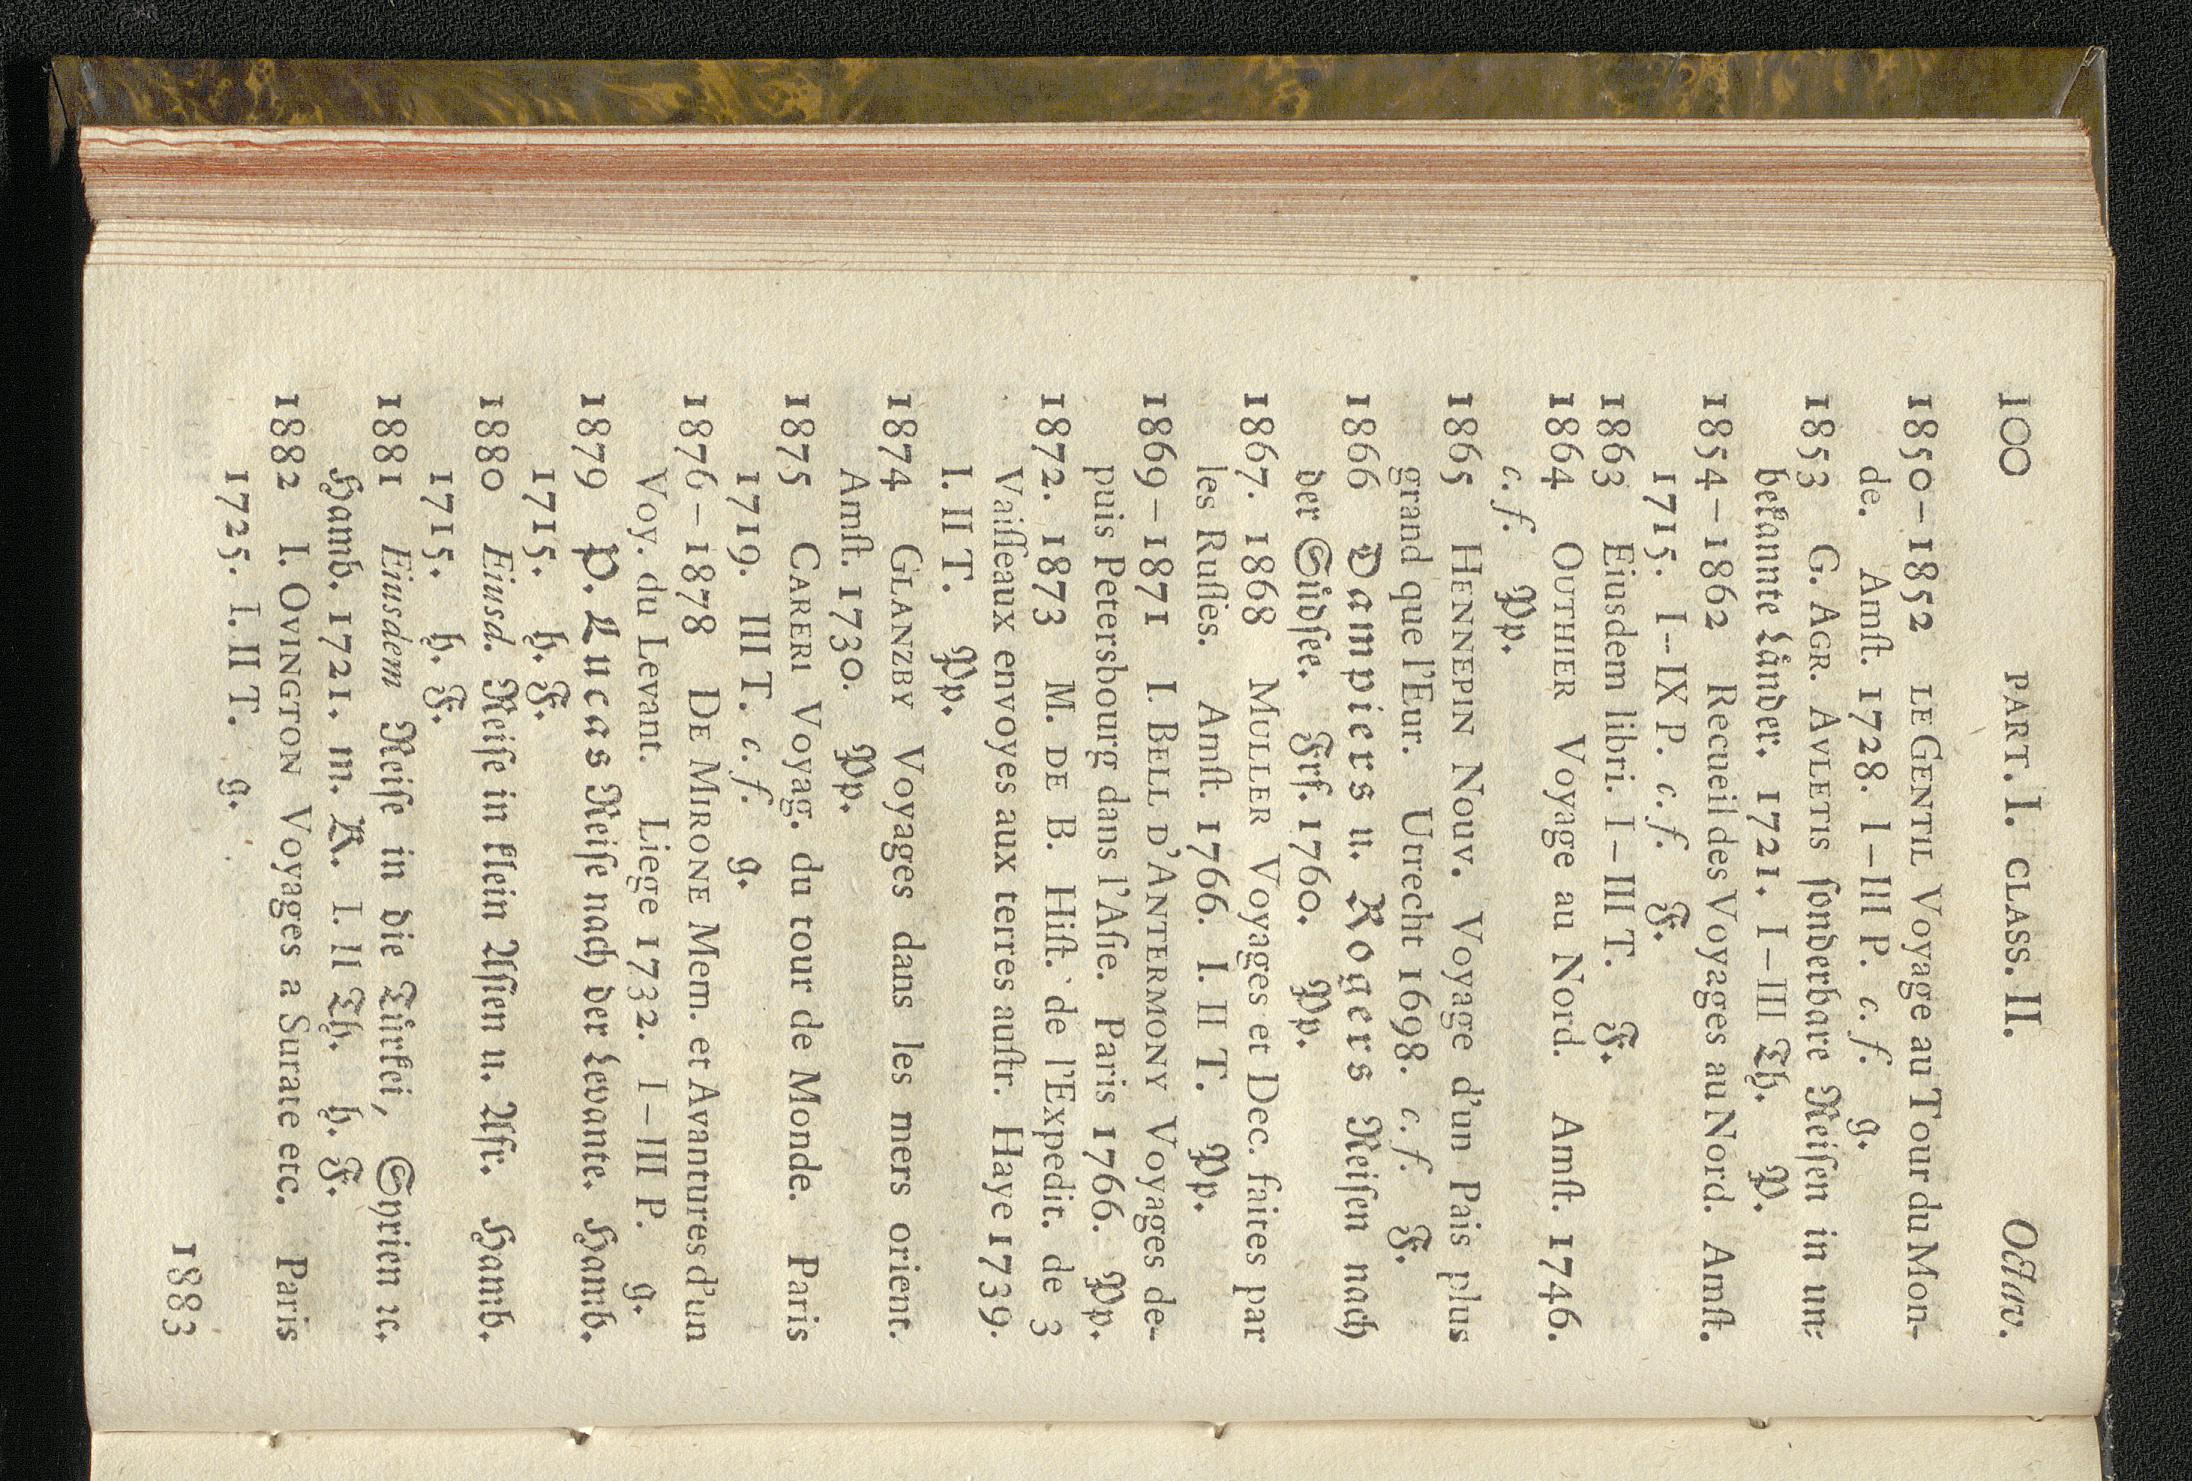 100 PART. I. CLASS. II. Octav.
1850–1852 LE GENTIL Voyage au Tour du Mon-
de. Amſt. 1728. I–III P. c. f. g.
1853 G. AGR. AVLETIS ſonderbare Reiſen in un-
bekannte Länder. 1721. I–III Th. P.
1854–1862 Recueil des Voyages au Nord. Amſt.
1715. I–IX P. c. f. F.
1863 Eiusdem libri. I–III T. F.
1864 OUTHIER Voyage au Nord. Amſt. 1746.
c. f. Pp.
1865 HENNEPIN Nouv. Voyage d'un Pais plus
grand que l'Eur. Utrecht 1698. c. f. F.
1866 Dampiers u. Rogers Reiſen nach
der Südſee. Frf. 1760. Pp.
1867. 1868 MULLER Voyages et Dec. faites par
les Ruſſes. Amſt. 1766. I. II T. Pp.
1869–1871 I. BELL D'ANTERMONY Voyages de-
puis Petersbourg dans l'Aſie. Paris 1766. Pp.
1872. 1873 M. DE B. Hiſt. de l'Expedit. de 3
Vaiſſeaux envoyes aux terres auſtr. Haye 1739.
I. II T. Pp.
1874 GLANZBY Voyages dans les mers orient.
Amſt. 1730. Pp.
1875 CARERI Voyag. du tour de Monde. Paris
1719. III T. c. f. g.
1876–1878 DE MIRONE Mem. et Avantures d'un
Voy. du Levant. Liege 1732. I–III P. g.
1879 P. Lucas Reiſe nach der Levante. Hamb.
1715. h. F.
1880 Eiusd. Reiſe in klein Aſien u. Afr. Hamb.
1715. h. F.
1881 Eiusdem Reiſe in die Türkei, Syrien ꝛc.
Hamb. 1721. m. K. I. II Th. h. F.
1882 I. OVINGTON Voyages a Surate etc. Paris
1725. I. II T. g.
1883